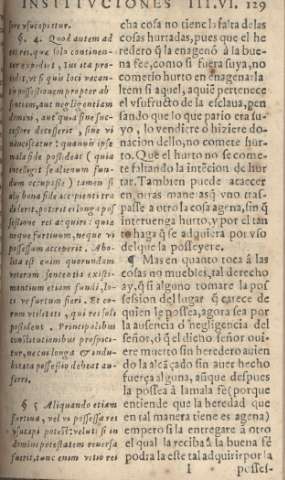 INSTITVCIONES III.VI. 129
sere vsucapitur.
§. 4. Quod autem ad
eas res, quæ solo continen-
tur expedit, ius ita pro-
cedit, vt si quis loci vacan-
tis possessionem propter ab-
sentiam, aut negligentiam
domini, aut quia sine suc-
cessore decesserit, sine vi
nanciscatur: quamuis ipse
mala fide possideat (quia
intelligit se alienum fun-
dum occupasse) tamen si
alij bona fide accipienti tra-
diderit, poterit ei longa pos
sessione res acquiri: quia
neque furtiuum, neque vi
possessum acceperit. Abo-
lita est enim quorundam
veterum sententia existi-
mantium etiam fundi, lo-
ci ve furtum fieri. Et eo-
rum vtilitati, qui res soli
possident. Principalibus
constitutionibus prospici-
tur, ne cui longa & indu-
bitata possessio debeat au-
ferri.
§ 5 Aliquando etiam
furtiua, vel vi possessa res
vsucapi potest: veluti si in
domini potestatem reuersa
fuerit, tunc enim vitio rei
cha cosa no tiene la falta de las
cosas hurtadas, pues que el he
redero q̃ la enagenó á la bue-
na fee, como si fuera suya, no
cometio hurto en enagenarla
Item si aquel, a quiẽ pertenece
el vsufructo de la esclaua, pen
sando que lo que pario era su-
yo, lo vendiere o hiziere do-
nacion dello, no comete hur-
to. Que el hurto no se come-
te faltando la intẽcion de hur
tar. Tambien puede acaecer
en otras maneras q̃ vno tras-
passe a otro la cosa agena, sin q̃
interuenga hurto, y por el tan
to haga q̃ se adquiera por vso
del que la posseyere.
¶ Mas en quanto toca á las
cosas no muebles, tal derecho
ay, q̃ si alguno tomare la pos
session del lugar q̃ carece de
quien le possea, agora sea por
la ausencia ó negligencia del
señor, ó q̃ el dicho señor oui-
ere muerto sin heredero auien
do la alcãçado sin auer hecho
fuerça alguna, aũque despues
la possea á la mala fé (por que
entiende que la heredad que
en tal manera tiene es agena)
empero si la entregare á otro
el qual la reciba á la buena fé
podra la este tal adquirir por la
I posses-